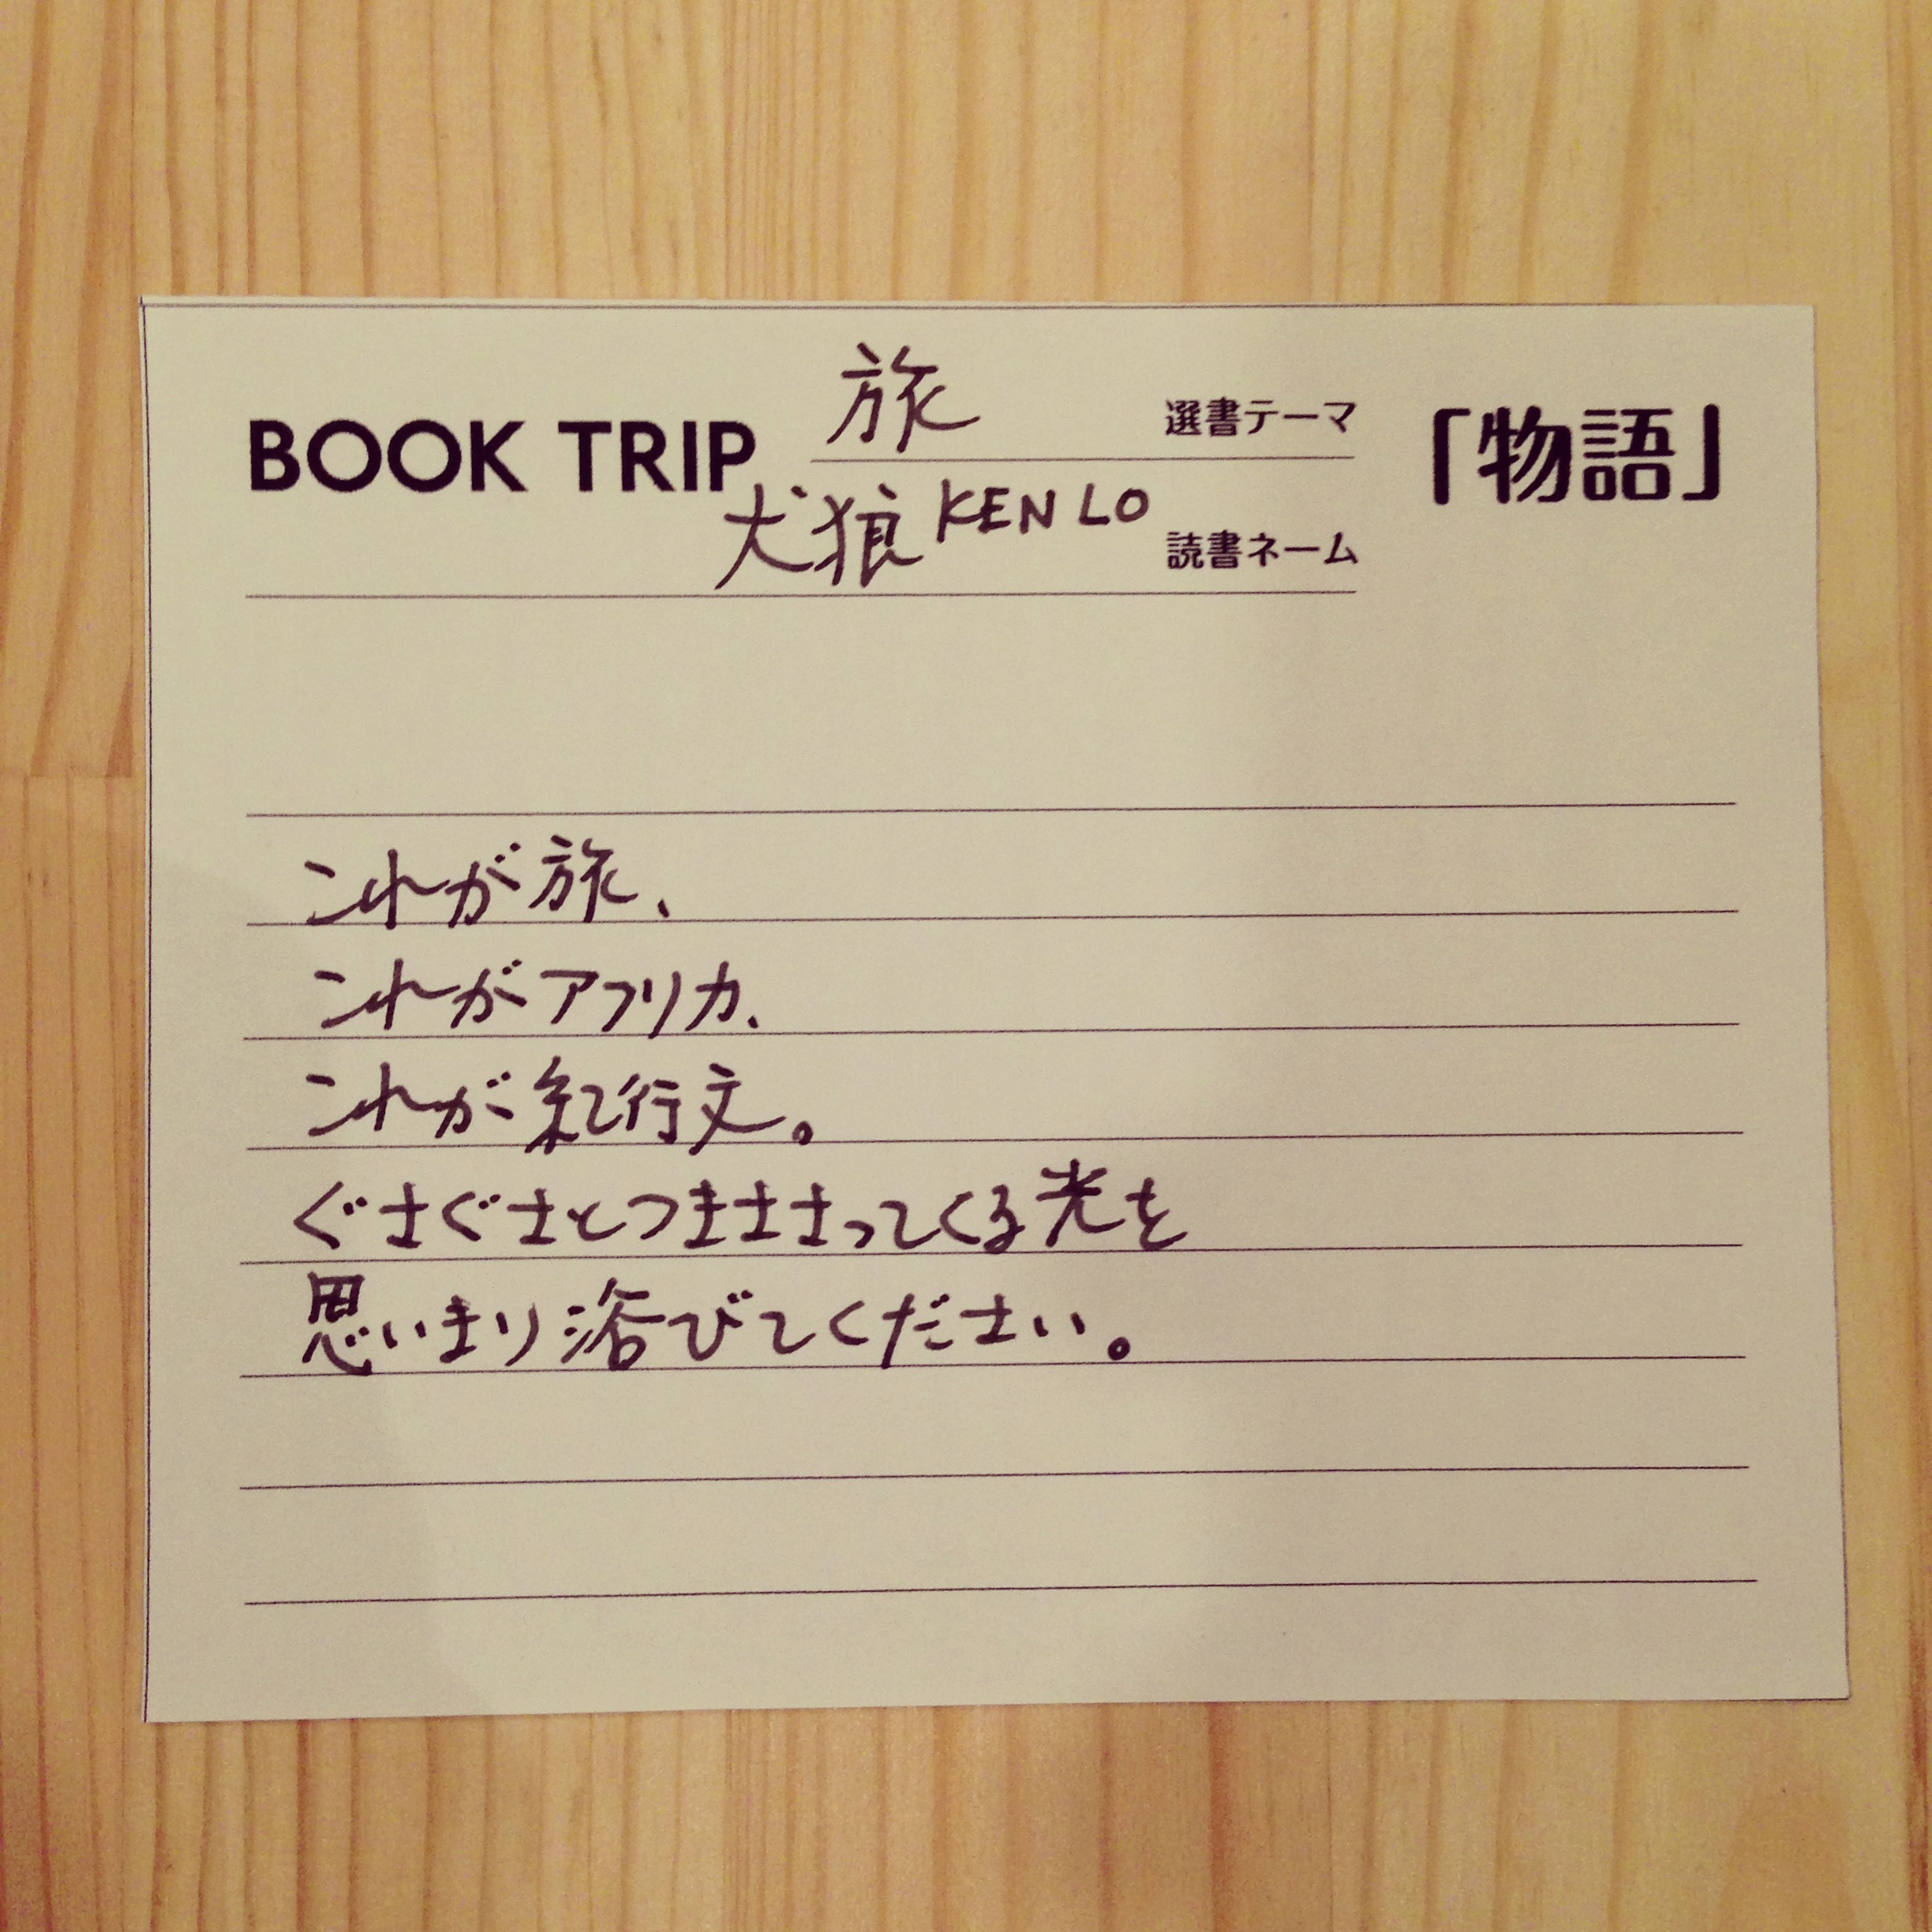 BOOK TRIP 旅 選書テーマ 「物語」
犬狼 KEN LO 読書ネーム
これが旅、
これがアフリカ、
これが紀行文。
ぐさぐさとつきささってくる光を
思いきり浴びてください。